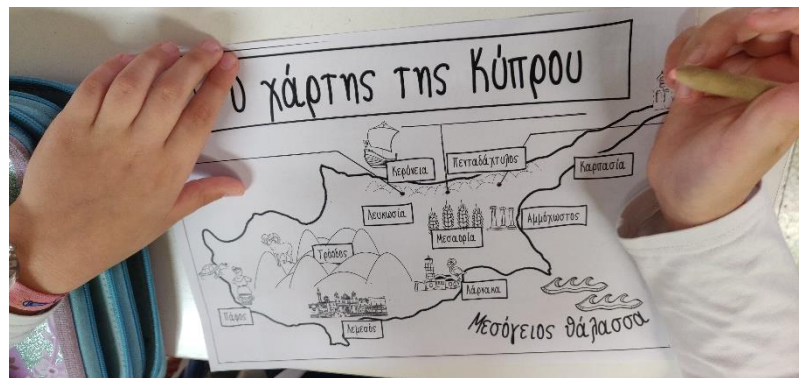 Ο χάρτης της Κύπρου
Κερύνεια
Πενταδάχτυλος
Καρπασία
Λευκωσία
Αμμόχωστος
Μεσαορία
Τρόοδος
Λάρνακα
Πάφος
Λεμεσός
Μεσόγειος θάλασσα